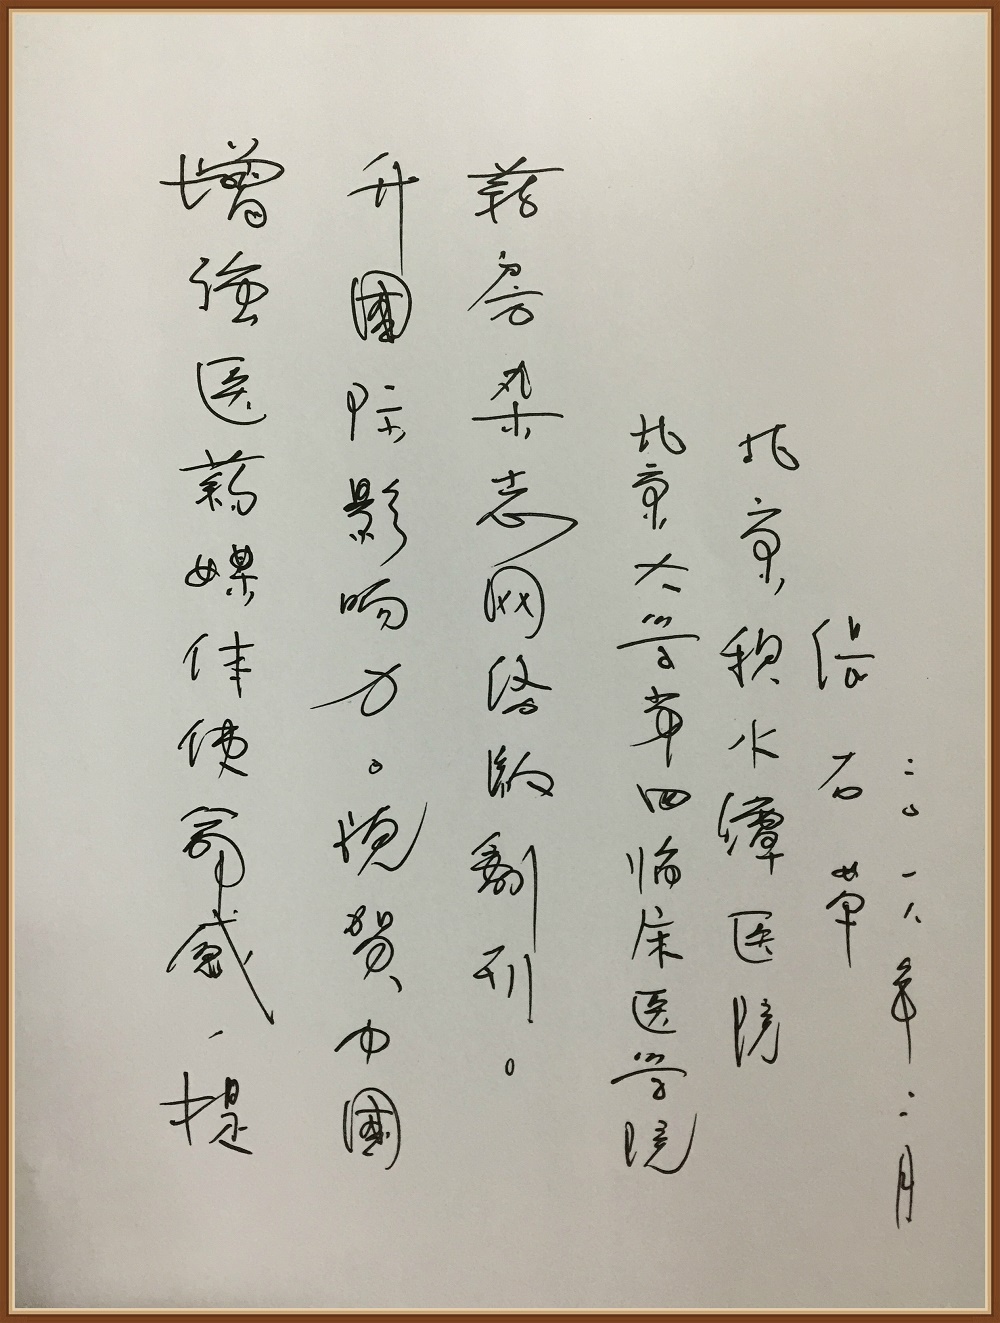 增强医药媒体使命感、提
升國际影响力。祝賀中國
药房杂志网络版創刊。
北京大学第四临床医学院
北京积水潭医院
石
二〇一八年二月